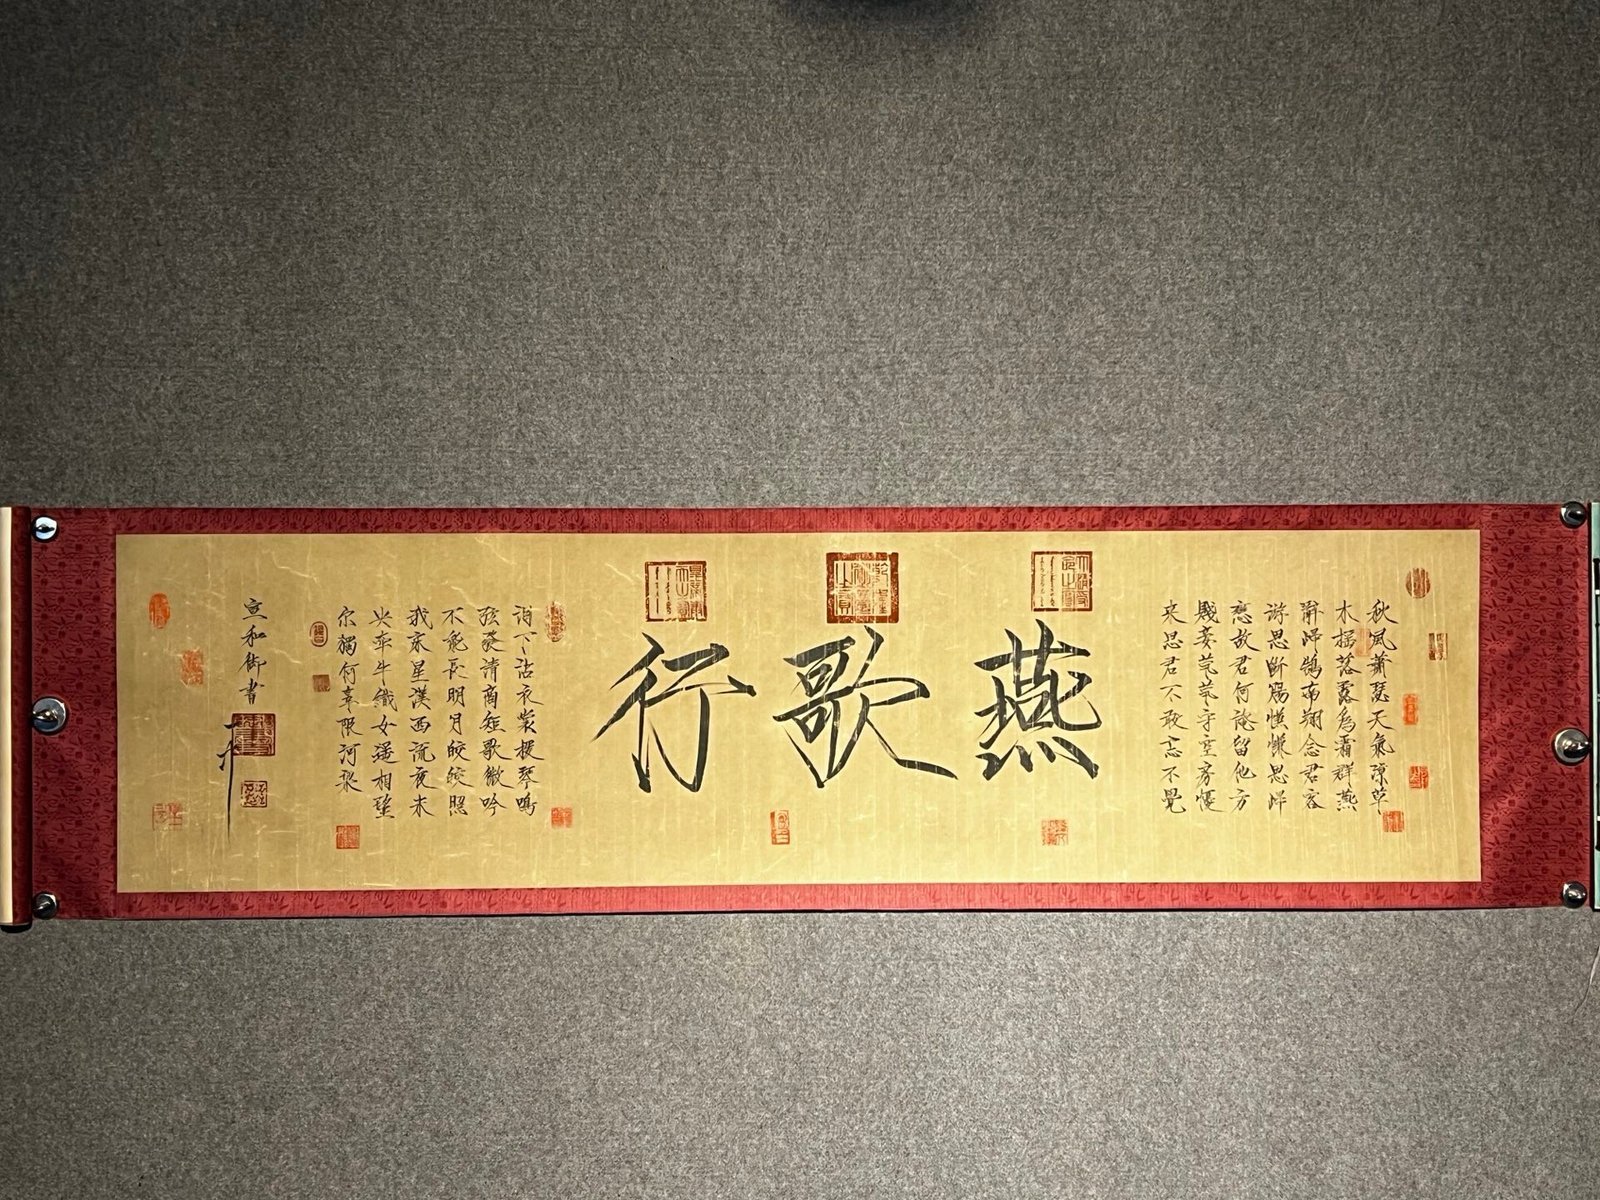 秋風蕭瑟天氣涼草
木搖落露為霜群燕
辭歸鵠南翔念君客
游思斷腸慊慊思歸
戀故君何淹留他方
賤妾茕茕守空房憂
來思君不敢忘不覺
燕歌行
淚下沾衣裳援琴鳴
弦發清商短歌微吟
不能長明月皎皎照
我床星漢西流夜未
央牽牛織女遥相望
尔獨何辜限河梁
宣和御書